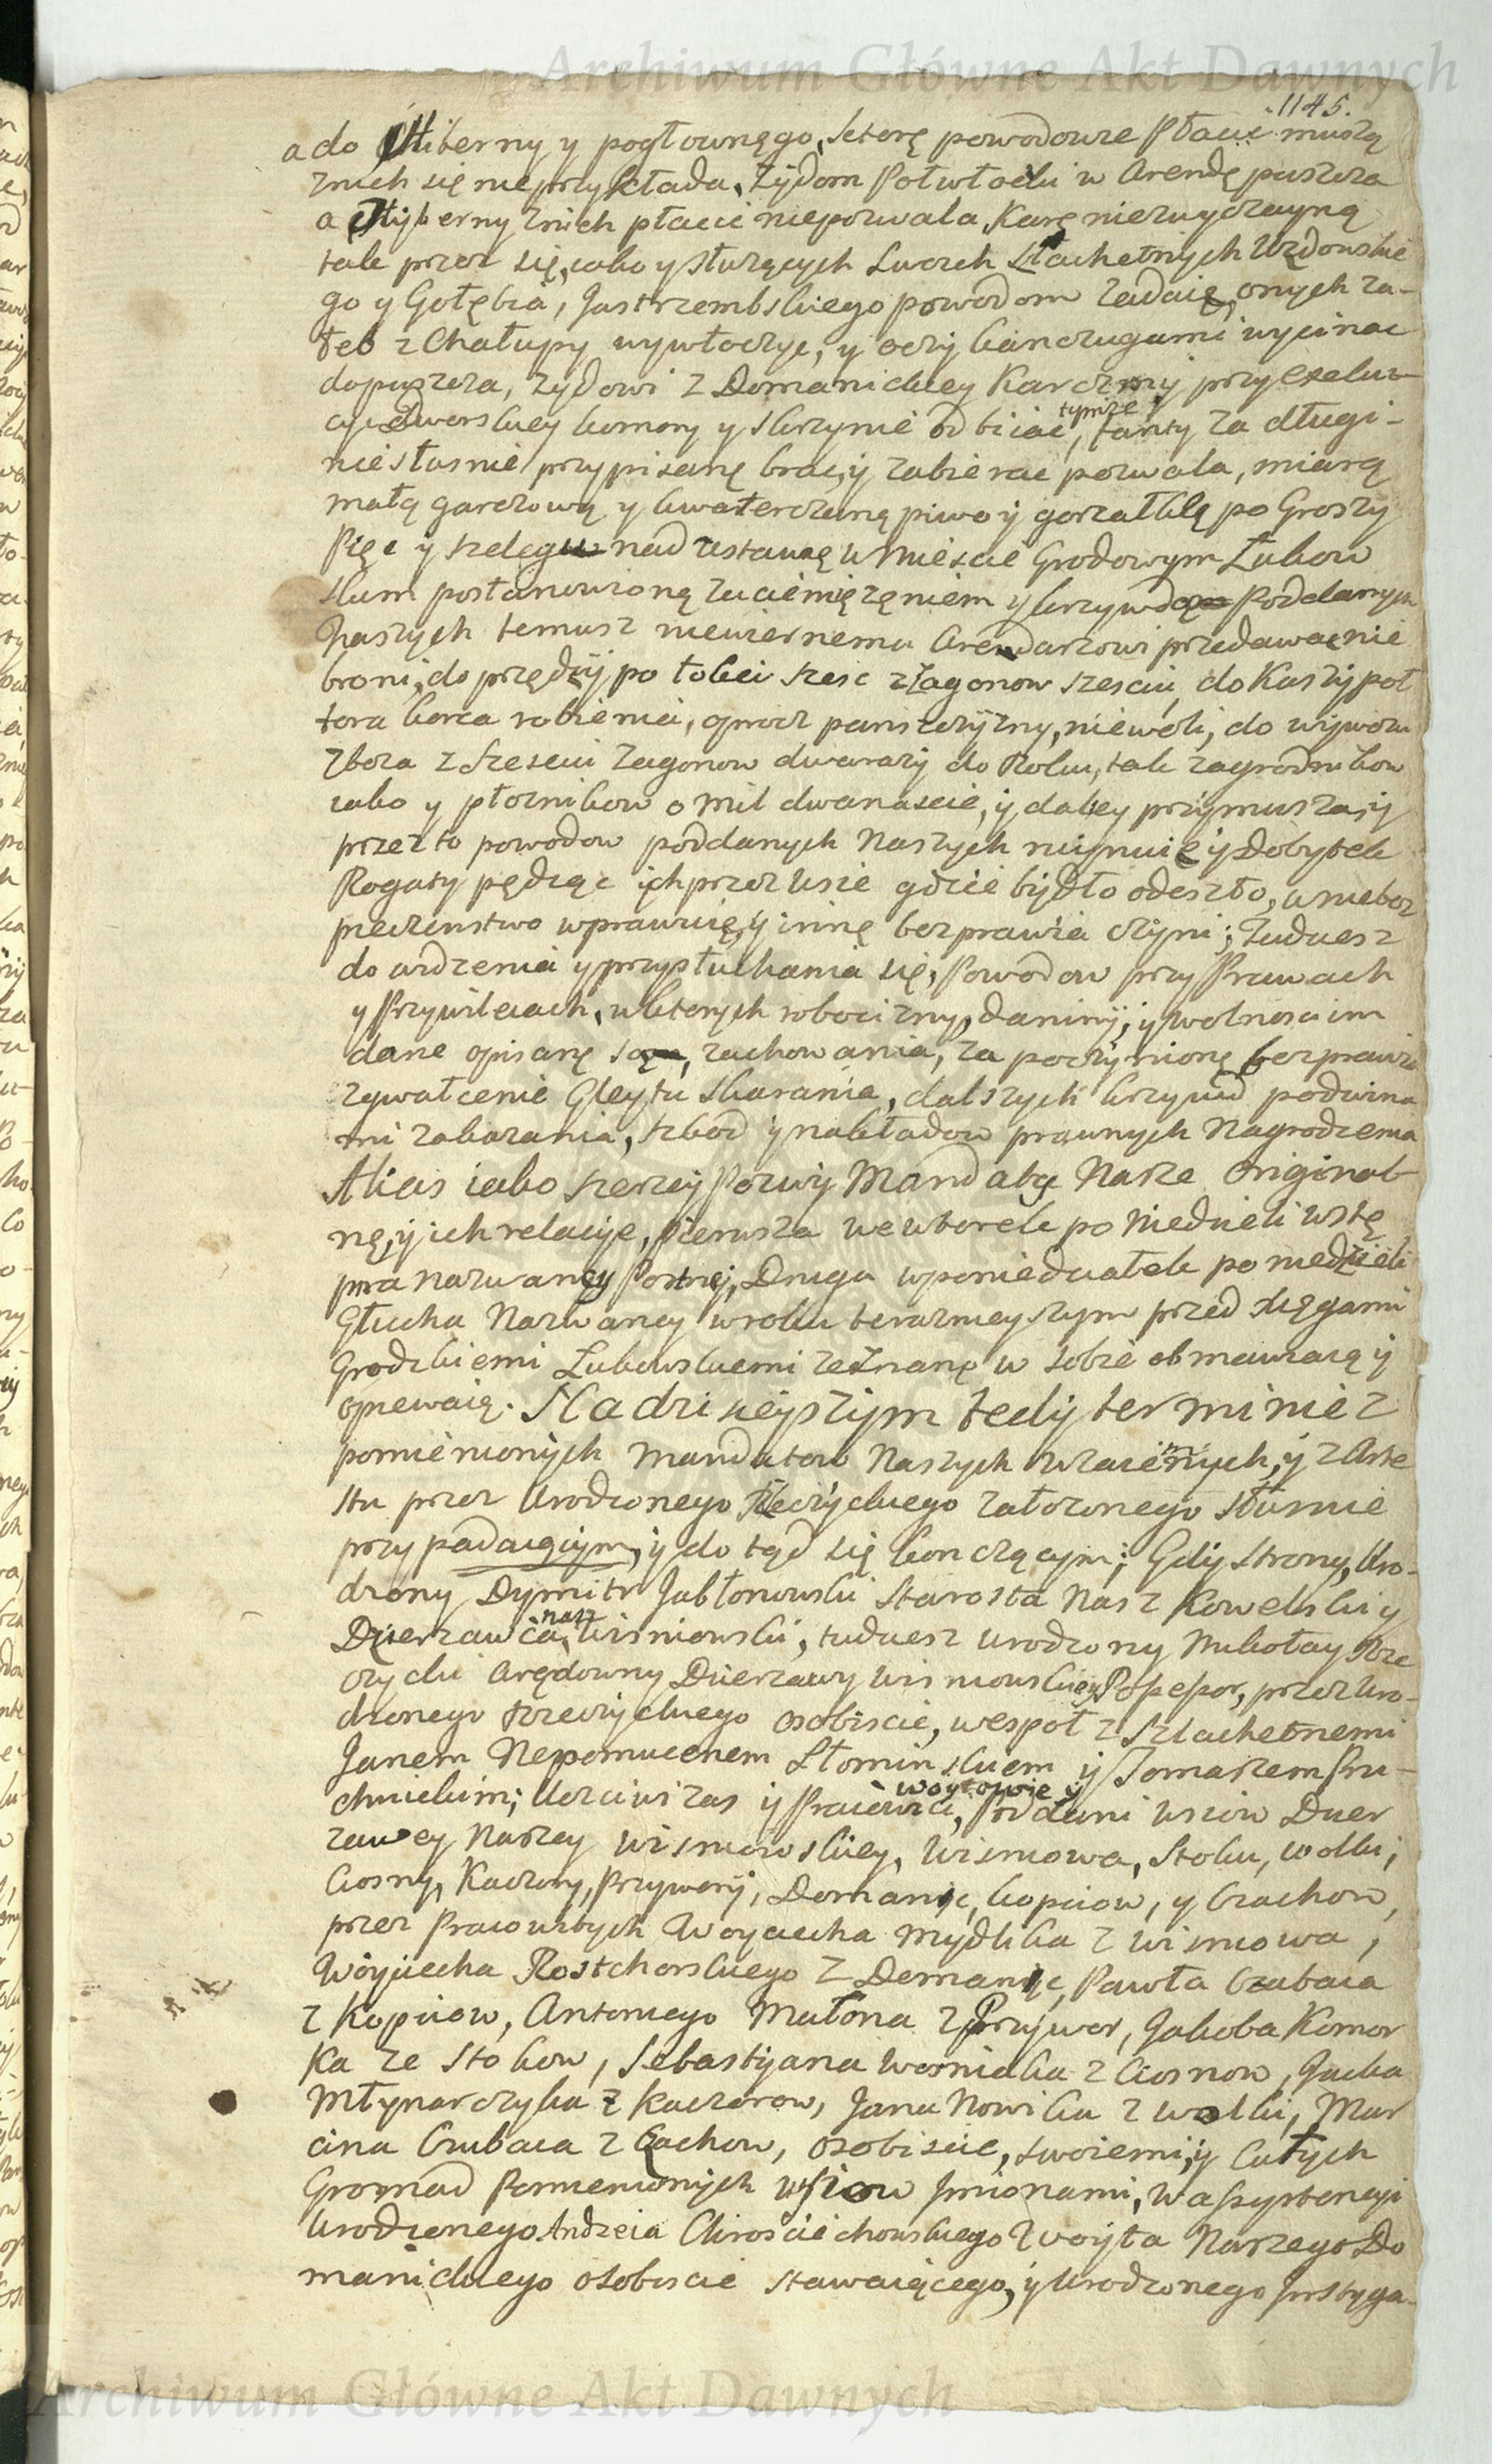 Archiwum Główne Akt Dawnych
1145.
a do Hiberny y pogłownęgo, ktorę powodowie Płacic muszą
znich się nieprzykłada, Zydom Połwłoki w Arendę puszcza
a Hyberny znich płacic niepozwala, Karę niezwyczayną
tak przez się, iako y słuzących Swoich Slachetnych Uzdowskie
go y Gołębia, Jastrzembskiego powodom zadaię, onych za
łeb z Chałupy wywłoczyc, y oczy kanczugami wycinac
dopuszcza, zydowi z Domanickiey Karczmy przy exekuc
cyi Dworskiey komory y skrzynie odbiiac, tymże fanty za długi
niesłusnie przypisanę brac, y zabierac pozwala, miarą
małą garcową y kwaterczaną piwo y gorzałkę po Groszy
Pięc y szelegu nad ustawę w Miescie Grodowym Łukow
skim postanowioną zuciemięzęniem y krzywdą Poddanych
Naszych temusz niewiernemu Arendarzowi przedawac nie
broni, do przędzy po łokci szesc z Zagonow szesciu, do Kaszy poł
tora korca robienia, oprocz panszczyzny, niewoli, do wywozu
Zboza z szesciu Zagonow dwarazy do Roku, tak zagrodnikow
iako y płoznikow o mil dwanascie, y daley przymusza, y
przez to powodow poddanych Naszych ruynuię y Dobytek
Rogaty pędząc ich przez wsie gdzie bydło odeszło, w niebez
pieczenstwo wprawuię, y innę bezprawia czyni; Tudziesz
do widzenia y przysłuchania się, Powodow przy Prawach
y Przywileiach, w ktorych robocizny, daniny, y wolnosci im
dane opisanę są, zachowania, za poczynionę bezprawia
zgwałcenie Gleytu skarania, dalszych krzywd podwina
mi zakazania, szkod y nakładow prawnych Nagrodzenia
Alias iako szerzey Pozwy Mandaty Nasze Original
nę, y ich relacyie, pierwsza we wtorek po Niedzieli wstę
pna nazwaney Postney, Druga w poniedziałek po niedzieli
Głucha Nazwaney w roku teraznieyszym przed xięgami
Grodzkiemi Łukowskiemi zeznanę w sobie obmawiaią y
opiewaią. Na dzisieyszym tedy terminie z
pomienionych Mandatow Naszych wzaiemnych, y z Are
stu przez Urodzonego Rzeczyckiego załozonego słusnie
przypadaiącym, y do tąd się konczącym; Gdy strony, Uro-
dzony Dymitr Jabłonowski Starosta Nasz Kowelski y
Dzierzawca nasz Wisniowski, tudziesz Urodzony Mikołay Rze
czycki Arędowny Dzierzawy Wisniowskiey Possessor, przez Uro-
dzonego Rzeczyckiego osobiscie, wespoł z Szlachetnemi
Janem Nepomucenem Słominskiem y Tomaszem Pru-
chnickim; Uczciwi zas y Pracowici, woytowie y Poddani wsiow Dzier
zawey Naszey Wisniowskiey, Wisniowa, Stoku, Wolki,
Ciosny, Kaczory, Przywory, Domanic, Kopciow, y Czachow,
przez Pracowitych Woyciecha Mydlika z Wisniowa,
Woyciecha Rostchorskiego z Domanic, Pawła Czubaia
z Kopciow, Antoniego Małona z Przywor, Jakoba Komor
Ka ze Stokow, Sebastyana Wozniaka z Ciosnow, Jacka
Młynarczyka z Kaczorow, Jana Nowika z Wolki, Mar
cina Czubaia z Czachow, osobiscie, swoiemi, y Całych
Gromad Pomienionych wsiow Jmionami, w assystencyi
Urodzonego Andrzeia Chrosciechowskiego Woyta Naszego Do
manickiego osobiscie stawaiącego, y Urodzonego Jnstyga-
Archiwum Główne Akt Dawnych